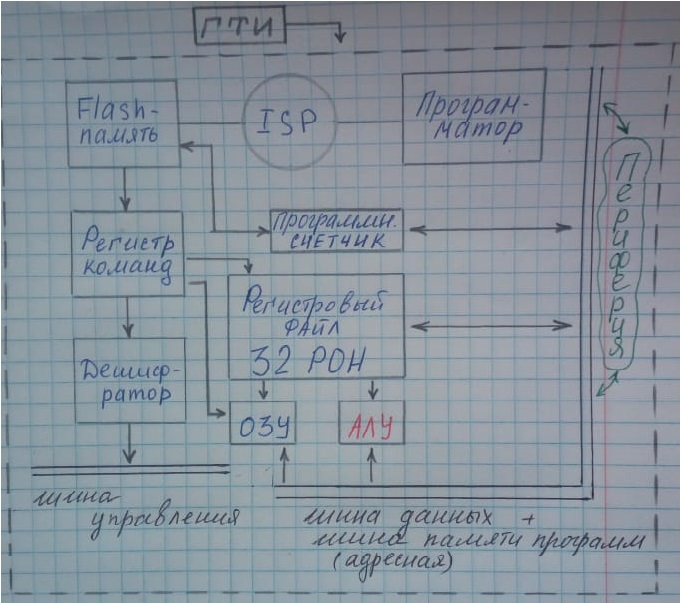 ГТИ
Flash-
память
ISP
Програм-
матор
Периферия
Программн.
счетчик
Регистр
команд
Регистровый
файл
32 РОН
Дешиф-
ратор
ОЗУ
АЛУ
шина
управления
шина данных +
шина памяти программ
(адресная)